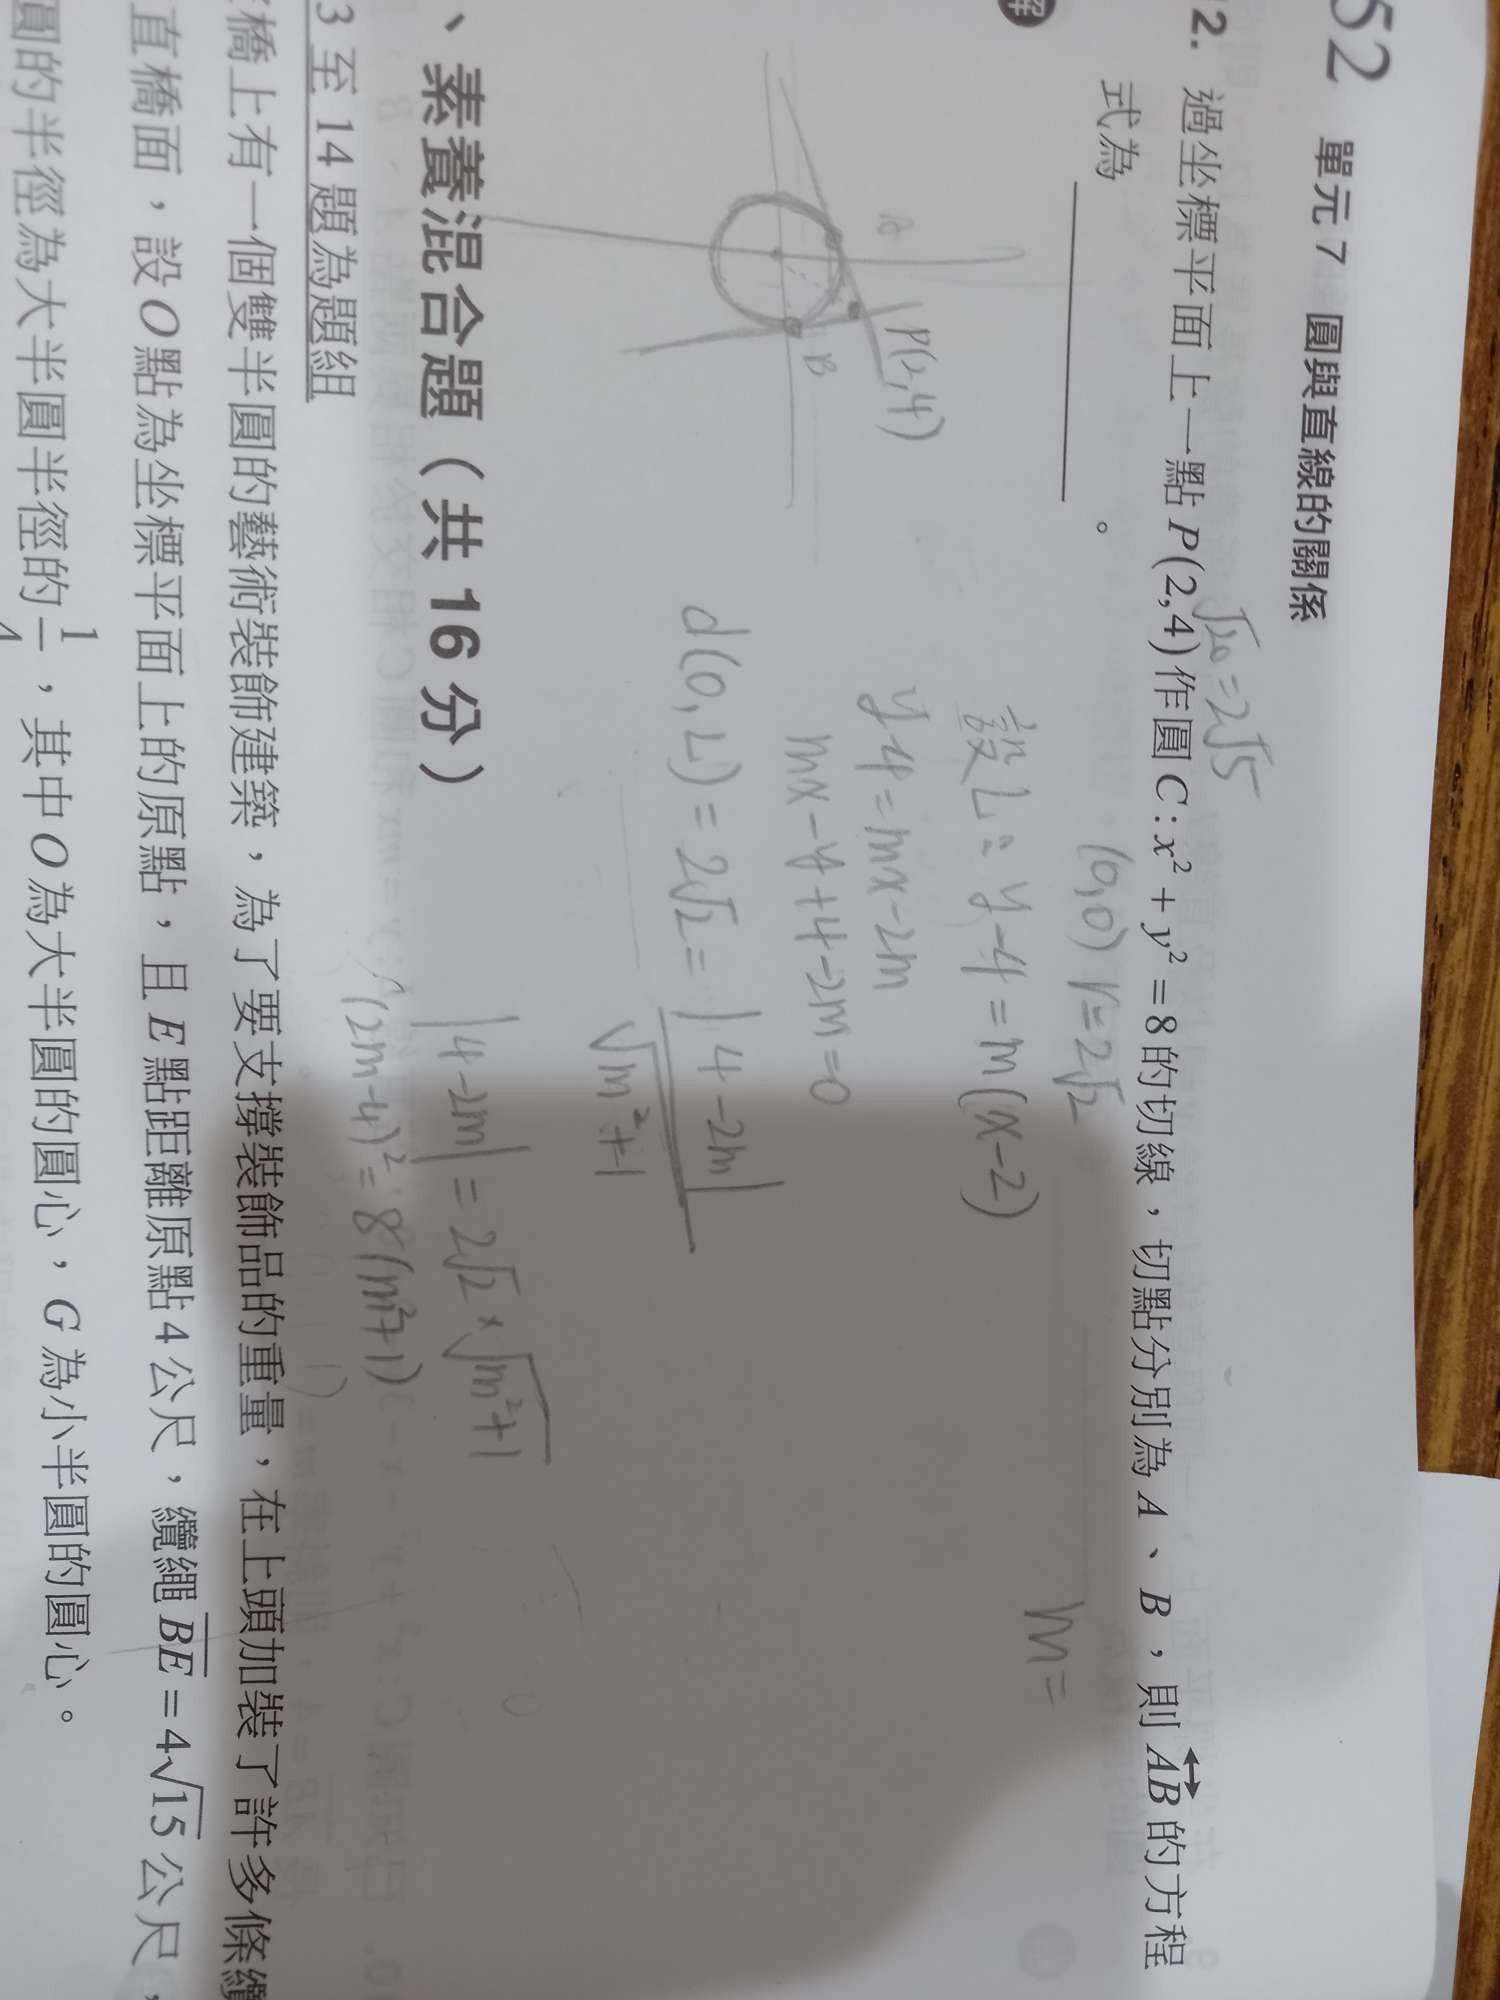 52 單元 7 圓與直線的關係
√20=2√5
2. 過坐標平面上一點 P(2,4)作圓 C:x²+y²=8的切線，切點分別為 A、B，則 AB 的方程
式為 ______ 。
(0,0) r=2√2
解
A
P(2,4)
B
設L: y-4=m(x-2)
y-4=mx-2m
mx-y+4-2m=0
d(0,L)=2√2=|4-2m|/√m²+1
m=
|4-2m|=2√2×√m²+1
(2m-4)²=8(m²+1)
、素養混合題（共 16 分）
3 至 14 題為題組
橋上有一個雙半圓的藝術裝飾建築，為了要支撐裝飾品的重量，在上頭加裝了許多條纜
直橋面，設O點為坐標平面上的原點，且E點距離原點4公尺，纜繩BE=4√15公尺，
圓的半徑為大半圓半徑的1/4，其中O為大半圓的圓心，G為小半圓的圓心。